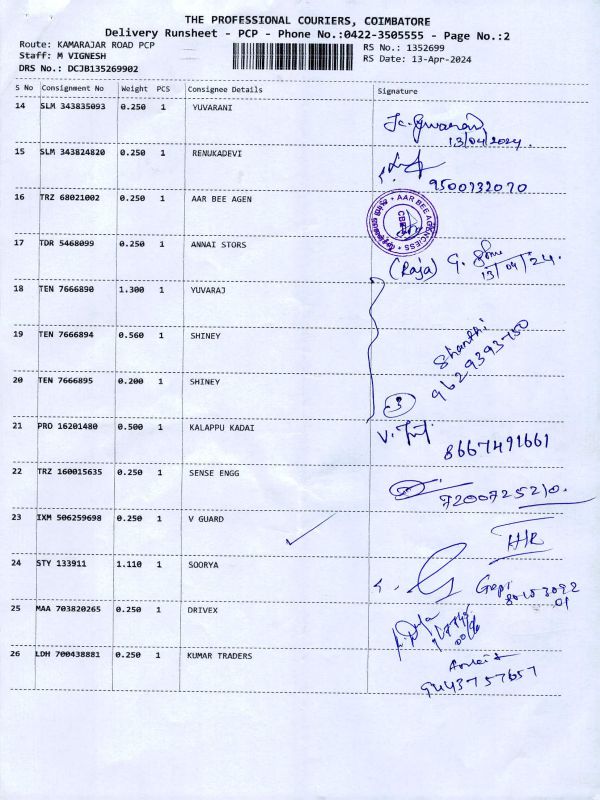 THE PROFESSIONAL COURIERS, COIMBATORE
Delivery Runsheet - PCP - Phone No.:0422-3505555 - Page No.:2
Route: KAMARAJAR ROAD PCP
RS No.: 1352699
Staff: M VIGNESH
RS Date: 13-Apr-2024
DRS No.: DCJB135269902
S No Consignment No Weight PCS Consignee Details Signature
14 SLM 343835093 0.250 1 YUVARANI
13/04/2024.
15 SLM 343824820 0.250 1 RENUKADEVI
9500932070
16 TRZ 68021002 0.250 1 AAR BEE AGEN
AAR BEE AGENCIESS
17 TDR 5468099 0.250 1 ANNAI STORS
(Raja) G.
13/04/24.
18 TEN 7666890 1.300 1 YUVARAJ
19 TEN 7666894 0.560 1 SHINEY
Shanthi
9629393750
20 TEN 7666895 0.200 1 SHINEY
3
21 PRO 16201480 0.500 1 KALAPPU KADAI
8667491661
22 TRZ 160015635 0.250 1 SENSE ENGG
7200725210.
23 IXM 506259698 0.250 1 V GUARD
24 STY 133911 1.110 1 SOORYA
Gopi
25 MAA 703820265 0.250 1 DRIVEX
26 LDH 700438881 0.250 1 KUMAR TRADERS
9443757657